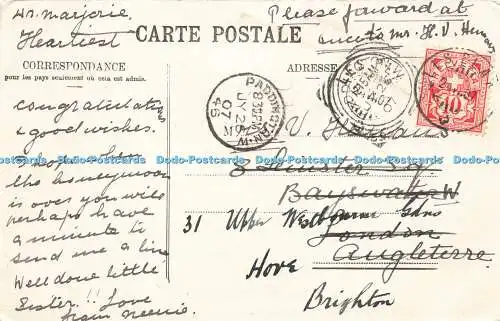 Dr. marjorie.
Heartiest
Please forward at
once to mr. H. V.
CARTE POSTALE
CORRESPONDANCE
pour les pays seulement où cela est admis.
ADRESSE
congratulations
& good wishes.
the honeymoon
is over you will
perhaps have
a minute to
send me a line
Well done little
Sister!! Love
from
PADDINGTON W.
8 30 PM
JY 26
07
46
HELVETIA
10
V.
Leinster Sq.
Bayswater W
31 Upper Westbourne Gdns
London
Angleterre
Hove
Brighton
Dodo-Postcards Dodo-Postcards Dodo-Postcards Dodo-Postcards Dodo-Postcards